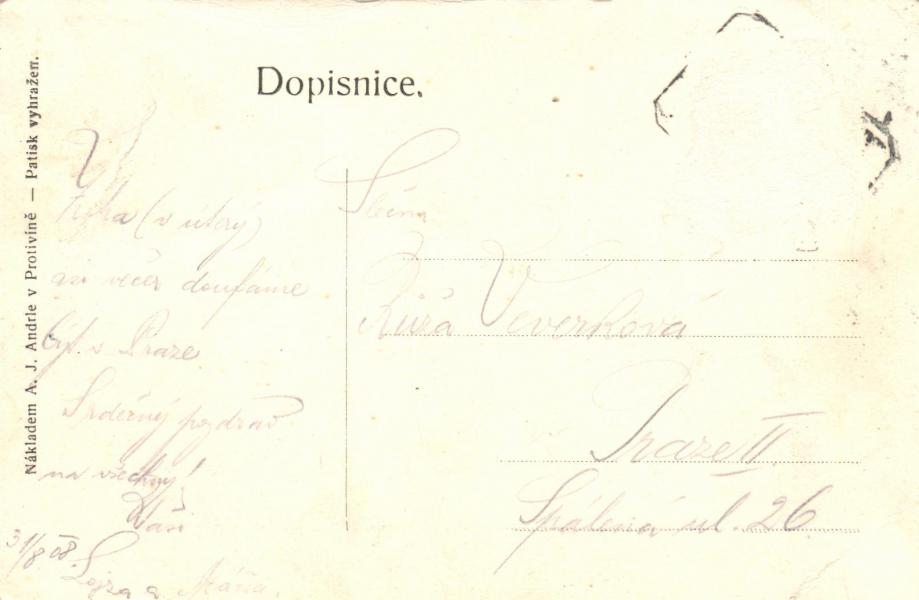 Dopisnice.
Nákladem A. J. Andrle v Protivíně — Patisk vyhražen.
(v úterý)
asi večer doufáme
být v Praze
Srdečný pozdrav
na všechny!
Vaši
31/8 08.
Lojza a Máňa.
Slečna
Růža Veverková
Praze II.
Spálená ul. 26